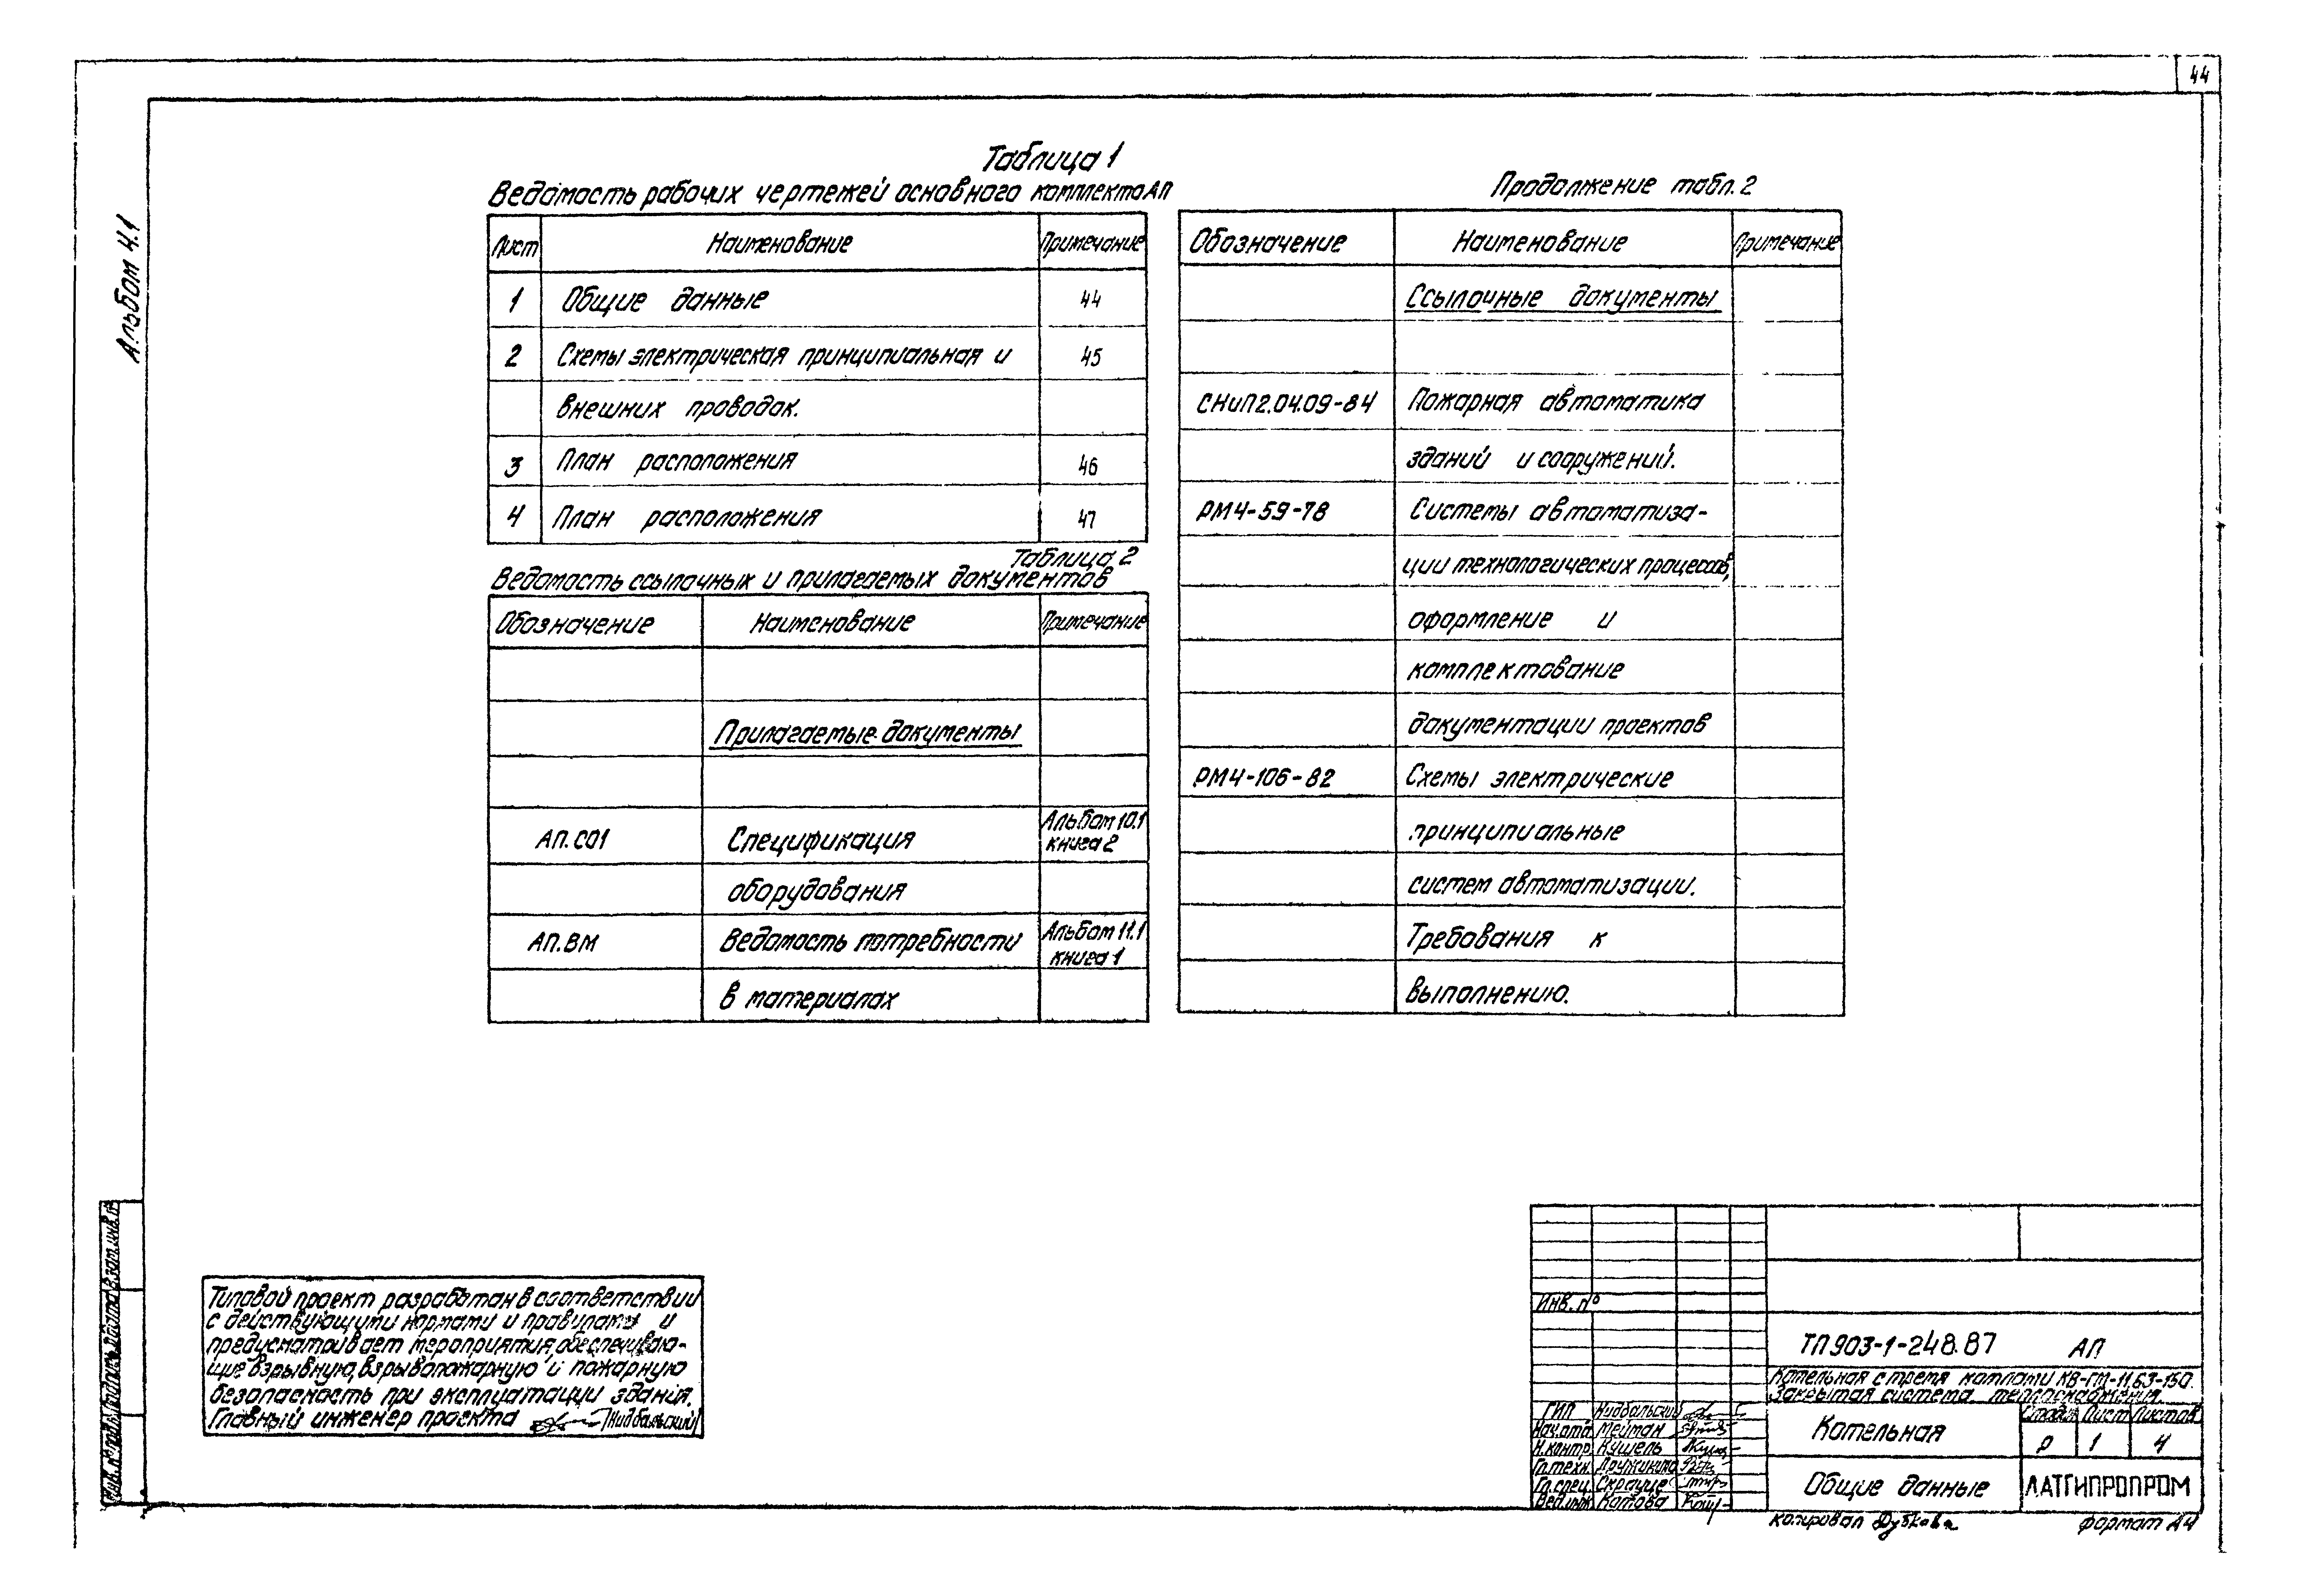 44
Альбом 4.1
Таблица 1
Ведомость рабочих чертежей основного комплекта АП
Лист Наименование Примечание
1 Общие данные 44
2 Схемы электрическая принципиальная и 45
внешних проводок.
3 План расположения 46
4 План расположения 47
Таблица 2
Ведомость ссылочных и прилагаемых документов
Обозначение Наименование Примечание
Прилагаемые документы
АП.СО1 Спецификация Альбом 10.1
книга 2
оборудования
АП.ВМ Ведомость потребности Альбом 11.1
книга 1
в материалах
Продолжение табл. 2
Обозначение Наименование Примечание
Ссылочные документы
СНиП2.04.09-84 Пожарная автоматика
зданий и сооружений.
РМ4-59-78 Системы автоматиза-
ции технологических процессов,
оформление и
комплектование
документации проектов
РМ4-106-82 Схемы электрические
принципиальные
систем автоматизации.
Требования к
выполнению.
Типовой проект разработан в соответствии
с действующими нормами и правилами и
предусматривает мероприятия, обеспечиваю-
щие взрывную, взрывопожарную и пожарную
безопасность при эксплуатации здания.
Главный инженер проекта /Нидбальский/
Инв. №
ТП 903-1-248.87 АП
Котельная с тремя котлами КВ-ГМ-11,63-150.
Закрытая система теплоснабжения.
ГИП Нидбальский
Нач.отд. Мейман
Н.контр. Кушель
Гл.техн. Дружинина
Гл.спец. Скрауце
Вед.инж. Котова
Котельная
Стадия Лист Листов
Р 1 4
Общие данные
ЛАТГИПРОПРОМ
копировал Дубкова
формат А4
Инв. № подл. Подпись и дата Взам. инв. №